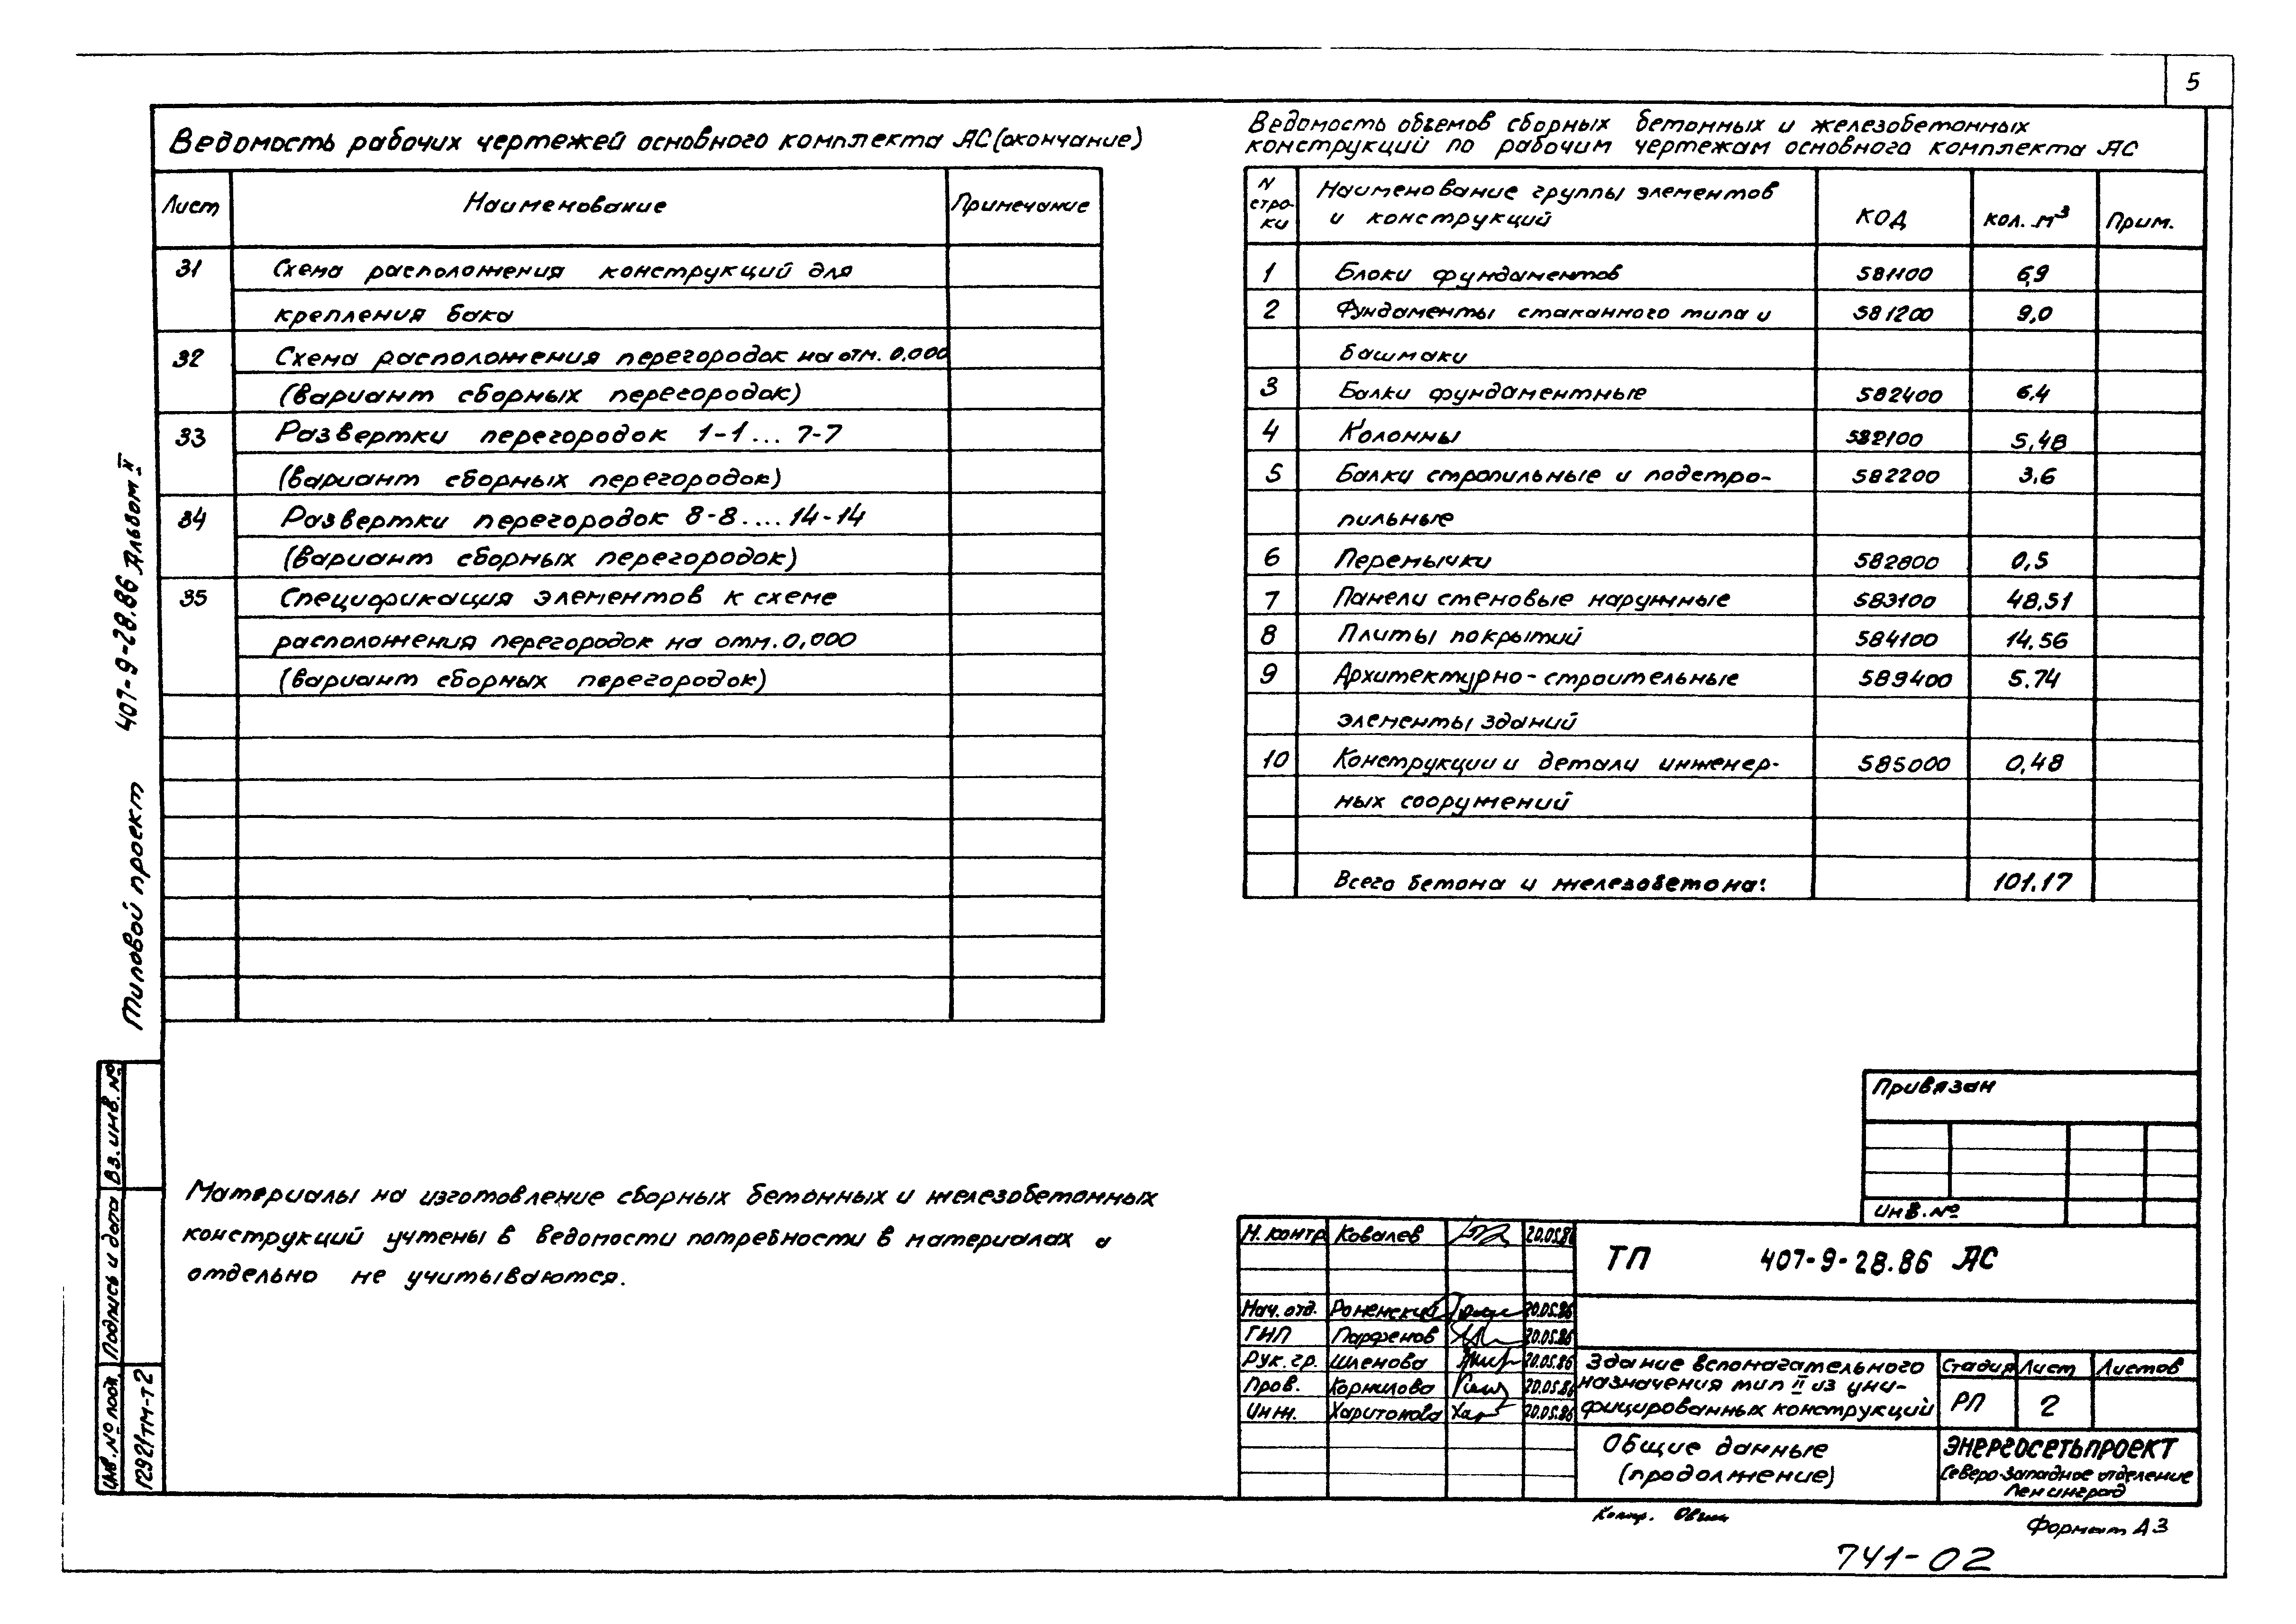 5
Ведомость рабочих чертежей основного комплекта АС (окончание)
Лист Наименование Примечание
31 Схема расположения конструкций для
крепления бака
32 Схема расположения перегородок на отм. 0,000
(вариант сборных перегородок)
33 Развертки перегородок 1-1... 7-7
(вариант сборных перегородок)
34 Развертки перегородок 8-8.... 14-14
(вариант сборных перегородок)
35 Спецификация элементов к схеме
расположения перегородок на отм. 0,000
(вариант сборных перегородок)
Ведомость объемов сборных бетонных и железобетонных
конструкций по рабочим чертежам основного комплекта АС
N строки Наименование группы элементов и конструкций КОД кол. м³ Прим.
1 Блоки фундаментов 581100 6,9
2 Фундаменты стаканного типа и 581200 9,0
башмаки
3 Балки фундаментные 582400 6,4
4 Колонны 582100 5,48
5 Балки стропильные и подстро- 582200 3,6
пильные
6 Перемычки 582800 0,5
7 Панели стеновые наружные 583100 48,51
8 Плиты покрытий 584100 14,56
9 Архитектурно-строительные 589400 5.74
элементы зданий
10 Конструкции и детали инженер- 585000 0,48
ных сооружений
Всего бетона и железобетона: 101.17
Типовой проект 407-9-28.86 Альбом II
Вз. инв. №
Подпись и дата
Инв. № подл. 12921тм-т2
Материалы на изготовление сборных бетонных и железобетонных
конструкций учтены в ведомости потребности в материалах и
отдельно не учитываются.
Привязан
Инв. №
Н. контр Ковалев 20.05.86
Нач. отд. Роменский 20.05.86
ГИП Парфенов 20.05.86
Рук. гр. Шленова 20.05.86
Пров. Корнилова 20.05.86
Инж. Харитонова 20.05.86
ТП 407-9-28.86 АС
Здание вспомогательного
назначения тип II из уни-
фицированных конструкций
Стадия Лист Листов
РП 2
Общие данные
(продолжение)
ЭНЕРГОСЕТЬПРОЕКТ
Северо-западное отделение
Ленинград
Копир.
Формат А3
741-02